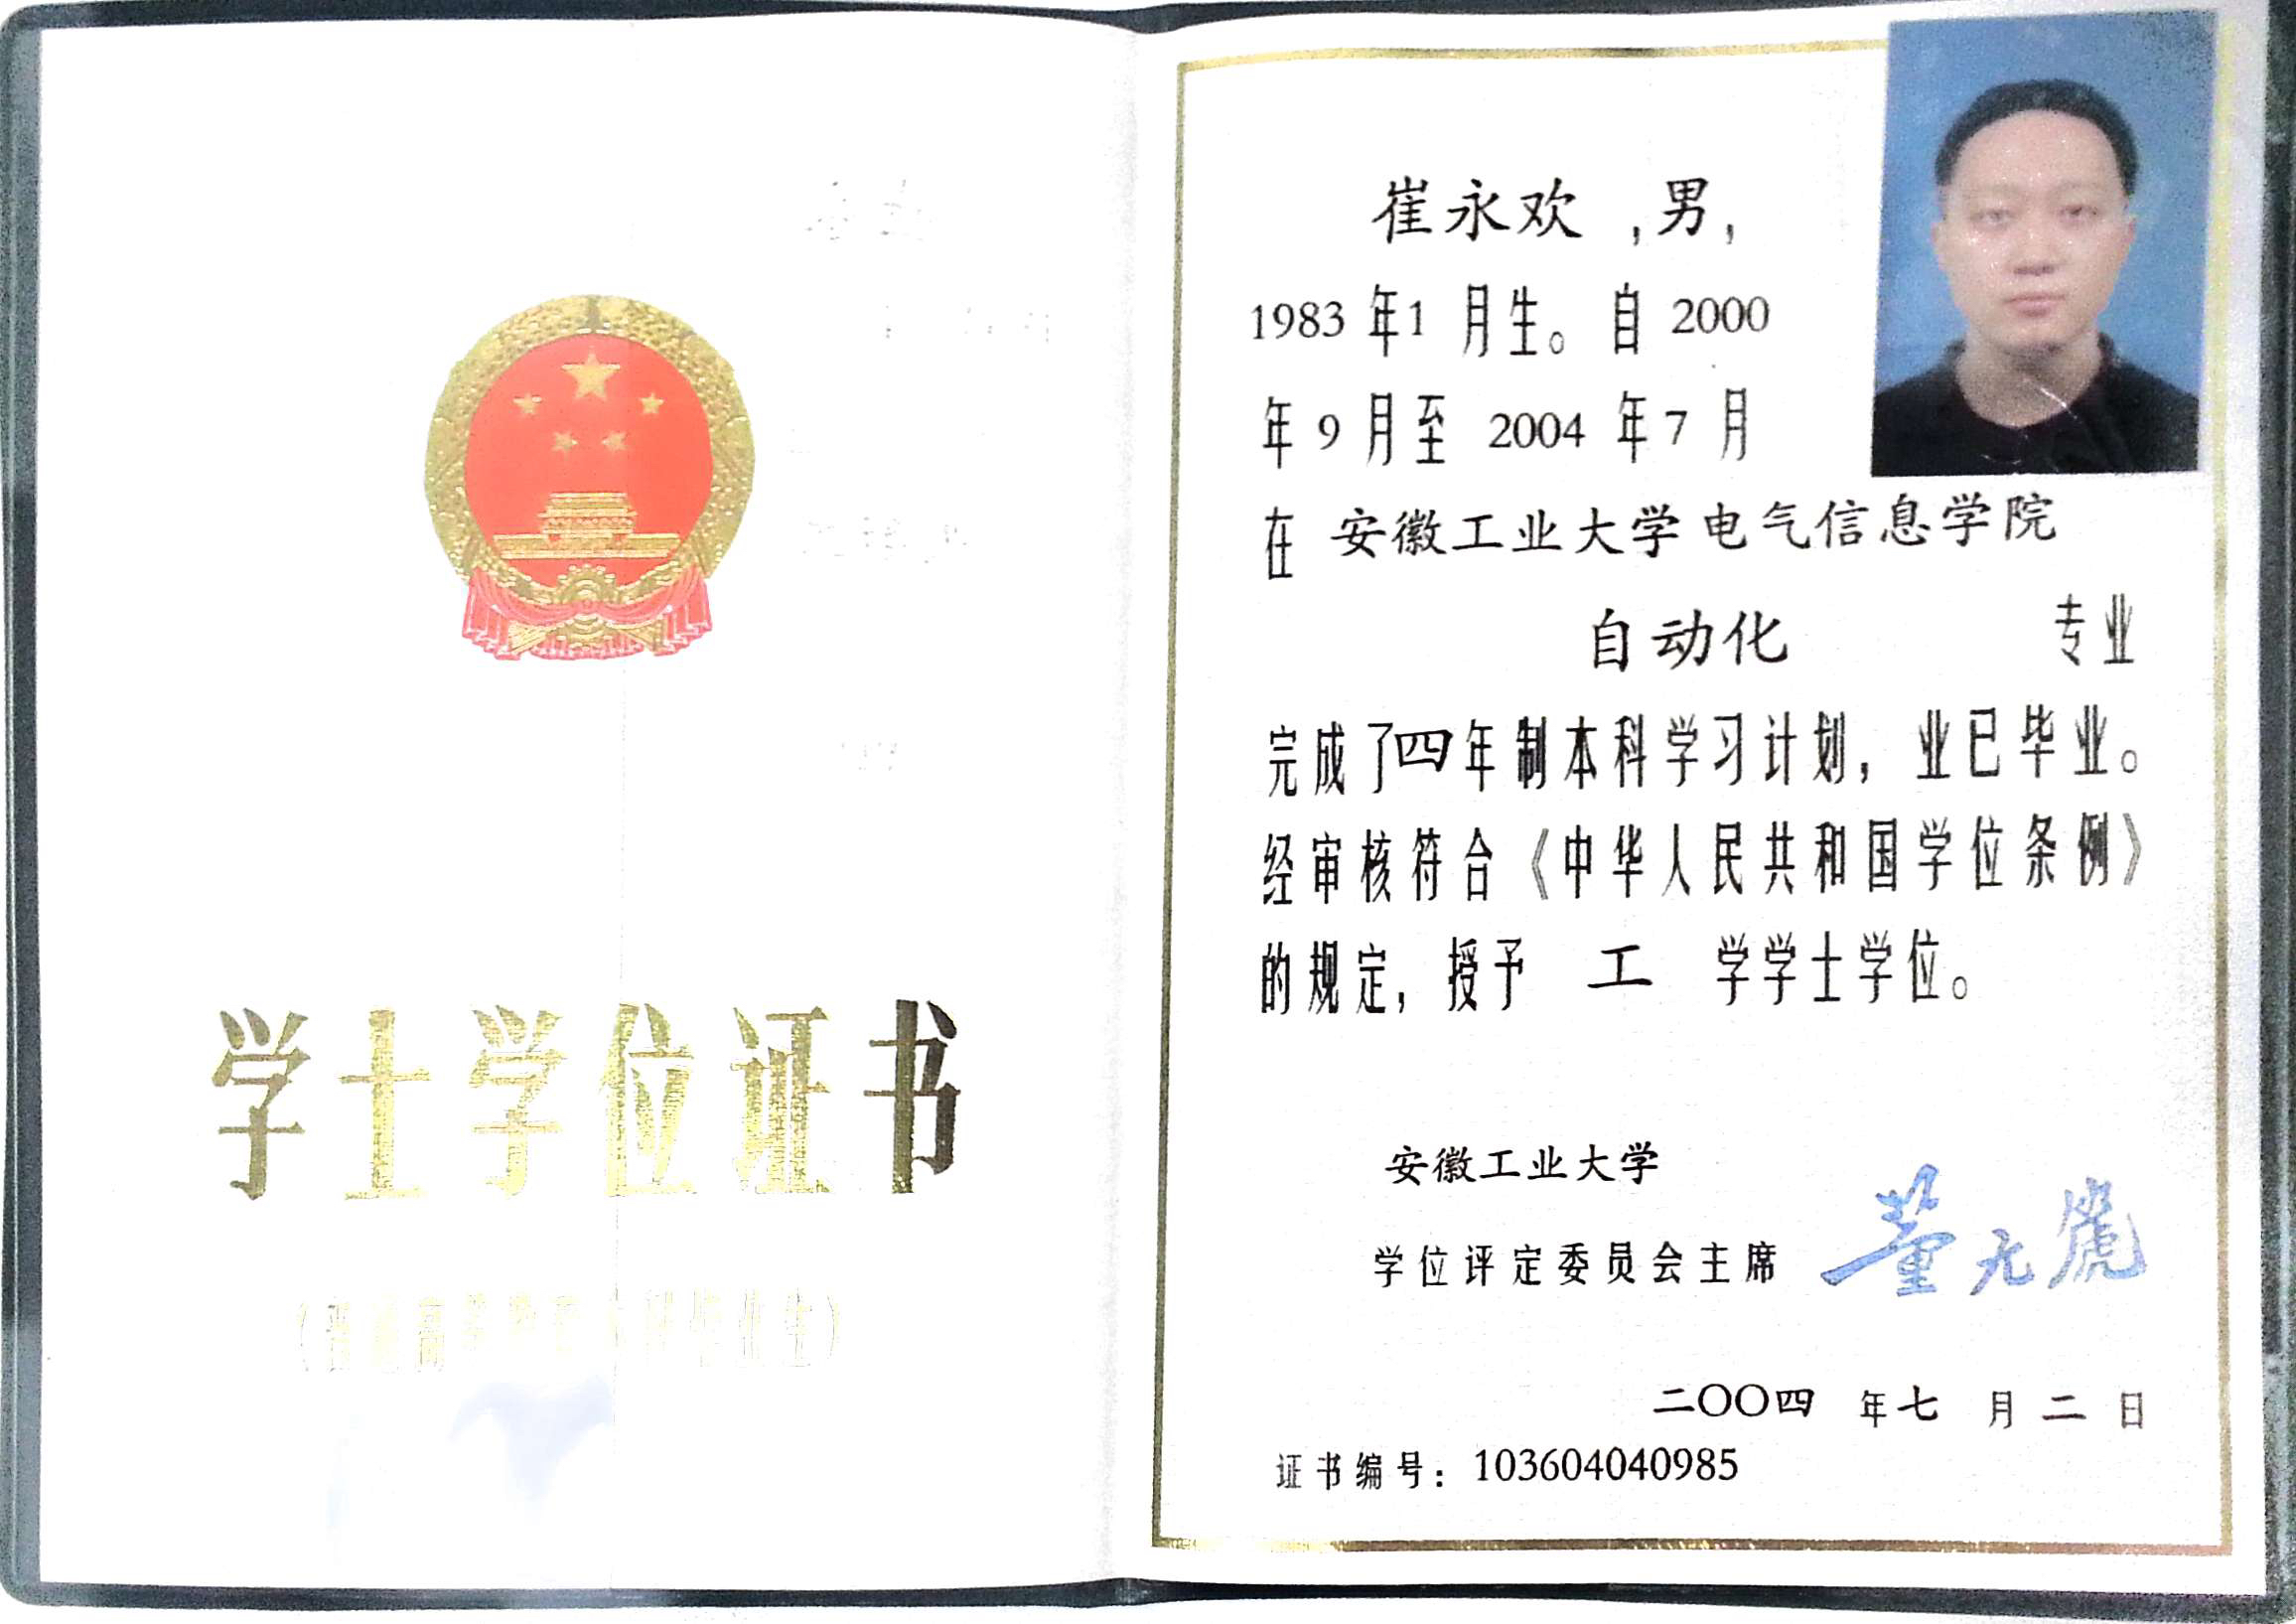 学士学位证书
(普通高等教育本科毕业生)
崔永欢 ,男,
1983 年1 月生。自 2000
年 9 月至 2004 年 7 月
在 安徽工业大学电气信息学院
自动化 专业
完成了四年制本科学习计划,业已毕业。
经审核符合《中华人民共和国学位条例》
的规定,授予 工 学学士学位。
安徽工业大学
学位评定委员会主席 董元篪
二〇〇四 年 七 月 二 日
证书编号:103604040985